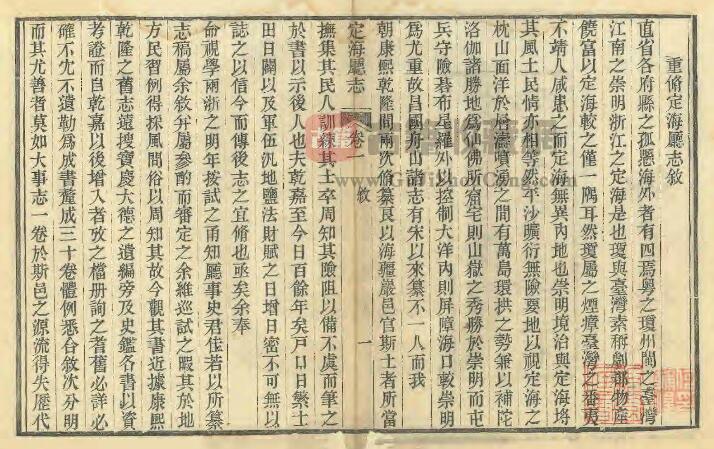 重脩定海廳志敘
直省各府縣之孤懸海外者有四焉粵之瓊州閩之臺灣
江南之崇明浙江之定海是也瓊與臺灣素稱劇郡物產
饒富以定海較之僅一隅耳然瓊屬之煙瘴臺灣之番夷
不靖人咸患之而定海無異內地也崇明境治與定海埒
其風土民情亦相等然平沙曠衍無險要地以視定海之
枕山面洋於層濤噴湧之間有萬島環拱之勢兼以補陀
洛伽諸勝地為仙佛所窟宅則山嶽之秀勝於崇明而屯
兵守險碁布星羅外以控制大洋內則屏障海口較崇明
為尤重故昌國舟山諸志有宋以來纂不一人而我
朝康熙乾隆間兩次脩纂良以海疆嚴邑官斯土者所當
定海廳志 卷一 敘 一
撫集其民人訓練其士卒周知其險阻以備不虞而筆之
於書以示後人也夫乾嘉至今日百餘年矣戶口日繁土
田日闢以及軍伍汛地鹽法財賦之日增日密不可無以
誌之以信今而傳後志之宜脩也亟矣余奉
命視學兩浙之明年按試之甬知廳事史君致若以所纂
志稿屬余敘幷屬參酌而審定之余維巡試之暇其於地
方民習例得採風問俗以周知其故今觀其書近據康熙
乾隆之舊志遠搜寶慶大德之遺編旁及史鑑各書以資
考證而自乾嘉以後增入者攷之檔册詢之耆舊必詳必
確不宂不遺勒為成書釐成三十卷體例悉合敘次分明
而其尤善者莫如大事志一卷於斯邑之源流得失歷代
www.G